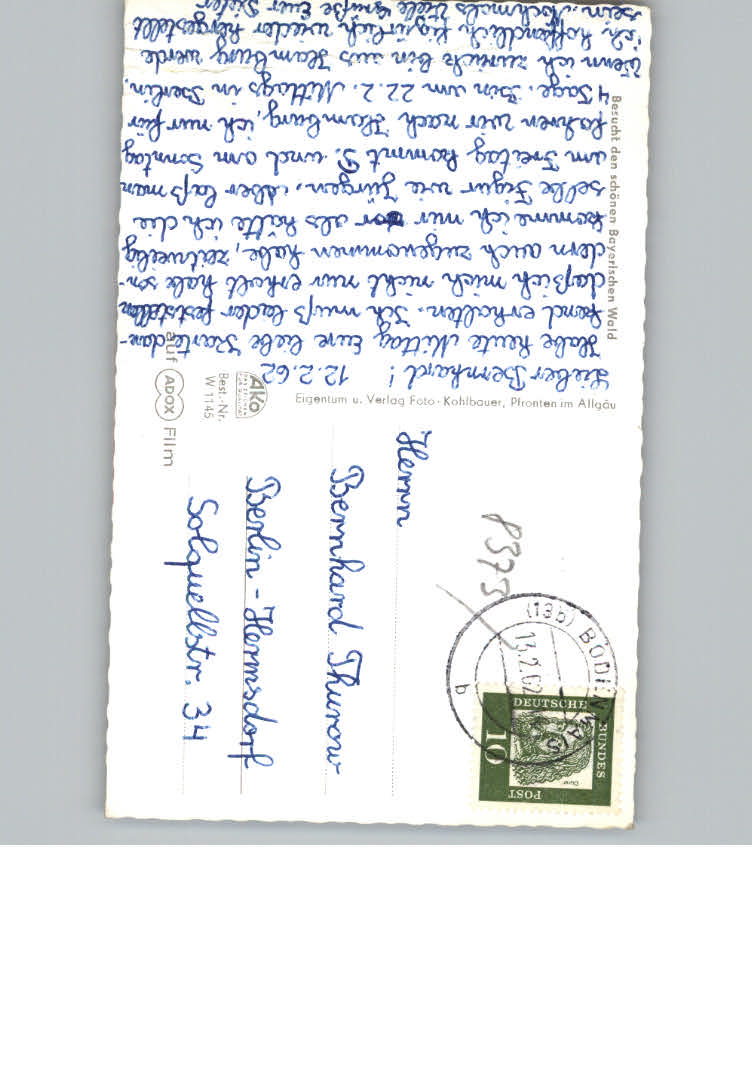 Lieber Bernhard! 12.2.62
Habe heute Mittag Eure liebe Karte dan-
kend erhalten. Ich muß leider feststellen
daß ich mich nicht nur erholt habe son-
dern auch zugenommen habe, zeitweilig
komme ich mir vor als hätte ich die
selbe Figur wie Jürgen. Aber laß man
am Freitag kommt D. und am Sonntag
fahren wir nach Hamburg, ich nur für
4 Tage. Bin am 22.2. Mittags in Berlin.
Wenn ich zurück bin aus Hamburg werde
ich hoffendlich figürlich wieder hergestellt
sein. Nochmals Viele Grüße Euer Dieter
Besucht den schönen Bayerischen Wald
Eigentum u. Verlag Foto-Kohlbauer, Pfronten im Allgäu
Ako
Best.-Nr.
W 1145
auf ADOX Film
8373
(13b) BODENMAIS
13.2.62
b
DEUTSCHE
BUNDES
POST
10
Dürer
Herrn
Bernhard Thurow
Berlin-Hermsdorf
Solquellstr. 34